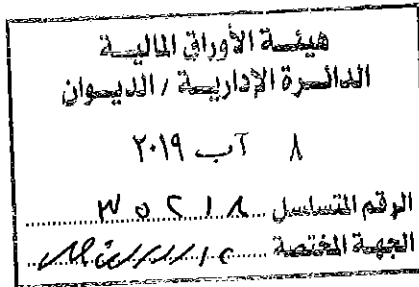 هيئة الأوراق المالية
الدائرة الإدارية / الديوان
٨ آب ٢٠١٩
الرقم التسلسل ٣٥٢١٨
الجهة المختصة